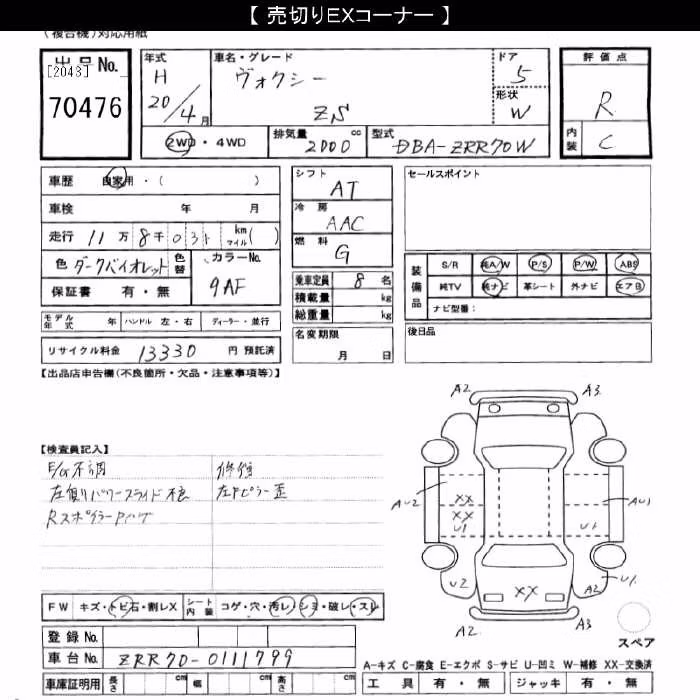 【 売切りEXコーナー 】
(複合機)対応用紙
出品No. [2043] 70476
年式 H 20/4月
車名・グレード ヴォクシー ZS
ドア 5
形状 W
評価点 R
内装 C
2WD・4WD
排気量 2000 cc
型式 DBA-ZRR70W
車歴 自家用・( )
車検 年 月
走行 11万8千031 km マイル( )
色 ダークバイオレット 色替 カラーNo. 9AF
保証書 有・無
シフト AT
冷房 AAC
燃料 G
乗車定員 8名
積載量 kg
総重量 kg
セールスポイント
装備品 S/R 純A/W P/S P/W ABS
純TV 純ナビ 革シート 外ナビ エアB
ナビ型番:
モデル年式 年 ハンドル 左・右 ディーラー・並行
リサイクル料金 13330 円 預託済
名変期限 月 日
後日品
【出品店申告欄(不良箇所・欠品・注意事項等)】
【検査員記入】
E/G不調 修復
左側リパワースライド不良 左Fピラー歪
Rスポイラー
A2 A3
AU2 XX XX U1 U1 AU1
U2 XX A2 U1
A2 A3
スペア
FW キズ・トビ石・割レX シート内装 コゲ・穴・汚レ・シミ・破レ・スレ
登録No.
車台No. ZRR70-0111799
車庫証明用 長さ cm 幅 cm 高さ cm
A-キズ C-腐食 E-エクボ S-サビ U-凹ミ W-補修 XX-交換済
工具 有・無 ジャッキ 有・無